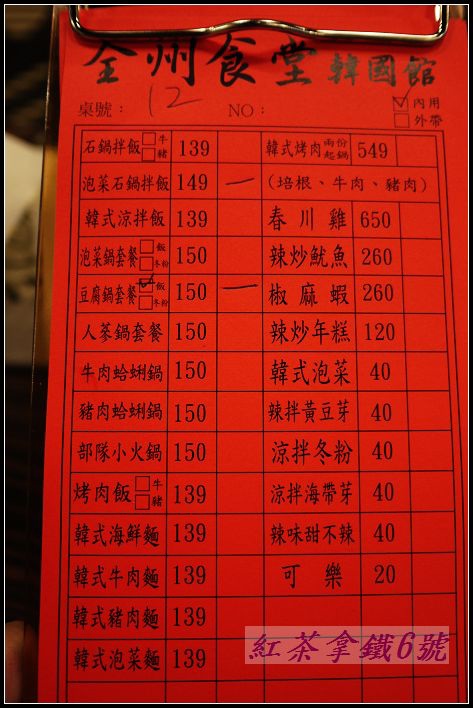 全州食堂 韓國館
桌號：12 NO： ☑內用 □外帶
石鍋拌飯 □牛 □豬 139
泡菜石鍋拌飯 149 一
韓式涼拌飯 139
泡菜鍋套餐 □飯 □冬粉 150
豆腐鍋套餐 ☑飯 □冬粉 150 一
人蔘鍋套餐 150
牛肉蛤蜊鍋 150
豬肉蛤蜊鍋 150
部隊小火鍋 150
烤肉飯 □牛 □豬 139
韓式海鮮麵 139
韓式牛肉麵 139
韓式豬肉麵 139
韓式泡菜麵 139
韓式烤肉 兩份起鍋 549
(培根、牛肉、豬肉)
春川雞 650
辣炒魷魚 260
椒麻蝦 260
辣炒年糕 120
韓式泡菜 40
辣拌黃豆芽 40
涼拌冬粉 40
涼拌海帶芽 40
辣味甜不辣 40
可樂 20
紅茶拿鐵6號